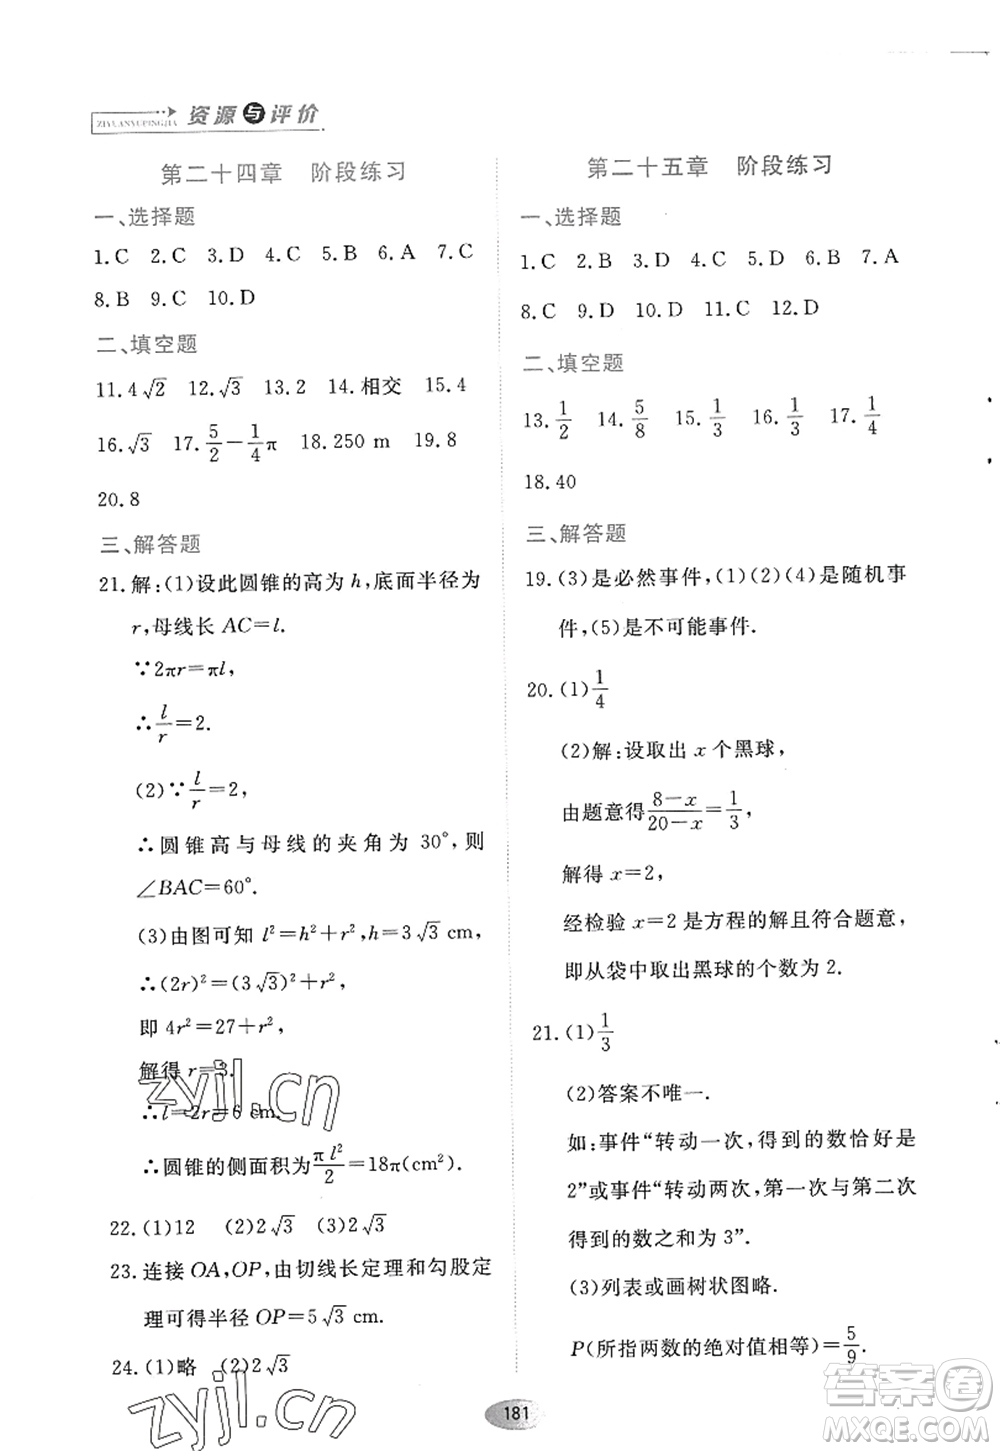 ZIYUANYUPINGJIA 资源与评价
第二十四章 阶段练习
一、选择题
1.C 2.C 3.D 4.C 5.B 6.A 7.C
8.B 9.C 10.D
二、填空题
11.4√2 12.√3 13.2 14.相交 15.4
16.√3 17.5/2－1/4π 18.250 m 19.8
20.8
三、解答题
21.解:(1)设此圆锥的高为 h,底面半径为
r,母线长 AC=l.
∵2πr=πl,
∴l/r=2.
(2)∵l/r=2,
∴圆锥高与母线的夹角为 30°,则
∠BAC=60°.
(3)由图可知 l²=h²+r²,h=3√3 cm,
∴(2r)²=(3√3)²+r²,
即 4r²=27+r²,
解得 r=3.
∴l=2r=6 cm.
∴圆锥的侧面积为πl²/2=18π(cm²).
22.(1)12 (2)2√3 (3)2√3
23.连接 OA,OP,由切线长定理和勾股定
理可得半径 OP=5√3 cm.
24.(1)略 (2)2√3
第二十五章 阶段练习
一、选择题
1.C 2.B 3.C 4.D 5.B 6.C 7.A
8.C 9.D 10.D 11.C 12.D
二、填空题
13.1/2 14.5/8 15.1/3 16.1/3 17.1/4
18.40
三、解答题
19.(3)是必然事件,(1)(2)(4)是随机事
件,(5)是不可能事件.
20.(1)1/4
(2)解:设取出 x 个黑球,
由题意得(8－x)/(20－x)=1/3,
解得 x=2,
经检验 x=2 是方程的解且符合题意,
即从袋中取出黑球的个数为 2.
21.(1)1/3
(2)答案不唯一.
如:事件“转动一次,得到的数恰好是
2”或事件“转动两次,第一次与第二次
得到的数之和为 3”.
(3)列表或画树状图略.
P(所指两数的绝对值相等)=5/9.
181
zyjl.cn
zyjl.cn
答案圈
MXQE.COM